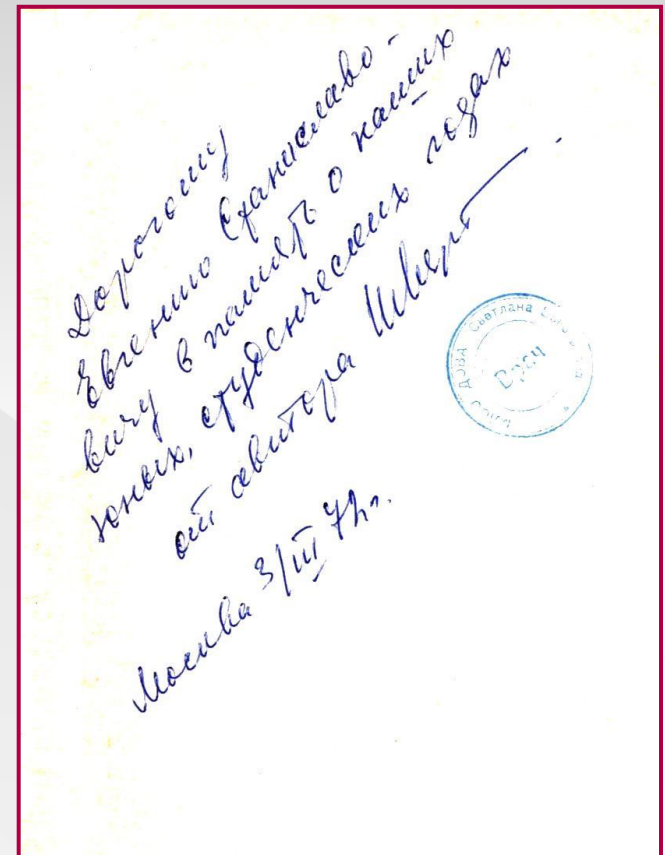 Дорогому
Евгению Станиславо-
вичу в память о наших
юных, студенческих годах
от автора
Москва 3/III 72г.
Светлана
Врач